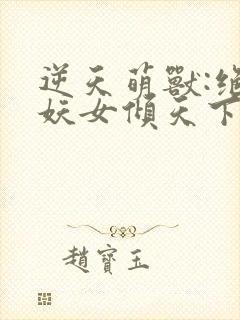 逆天萌獸:絕
妖女傾天下
趙寶玉